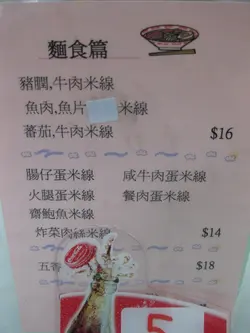 麵食篇
豬膶,牛肉米線
魚肉,魚片 米線
蕃茄,牛肉米線 $16
腸仔蛋米線 咸牛肉蛋米線
火腿蛋米線 餐肉蛋米線
齋鮑魚米線
炸菜肉絲米線 $14
五香 $18
5